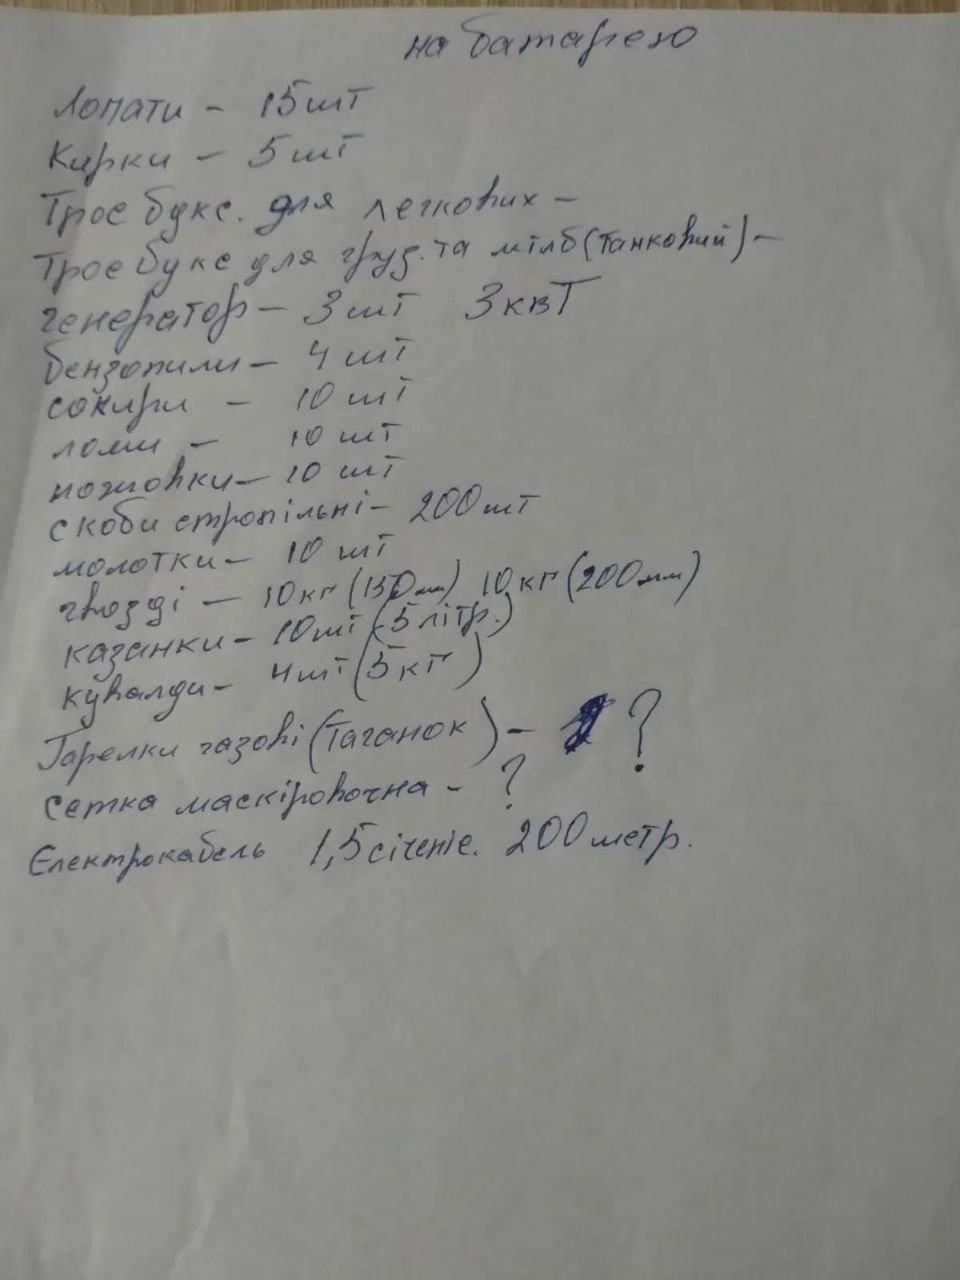 на батарею
Лопати - 15 шт
Кирки - 5 шт
Трос букс. для легкових -
Трос букс для груз. та мтлб (танковий) -
генератор - 3 шт 3 квТ
бензопили - 4 шт
сокири - 10 шт
ломи - 10 шт
ножовки - 10 шт
скоби стропільні - 200 шт
молотки - 10 шт
гвозді - 10 кг (150 мм) 10 кг (200 мм)
казанки - 10 шт (5 літр.)
кувалди - 4 шт (5 кг)
Гарелки газові (Таганок) - ?
сетка маскіровочна - ?
Електрокабель 1,5 січеніє. 200 метр.